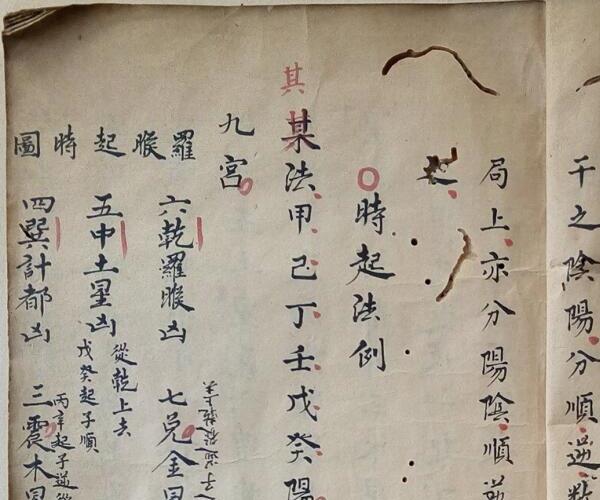 干之陰陽分順逆
局上亦分陽陰順逆
起
時起法例
其
某法甲己丁壬戊癸陽
九宮
羅睺起時圖
六乾羅睺凶
七兌金
五中土星凶
從乾上去
戊癸起子順
四巽計都凶
三震木
丙辛起子逆從